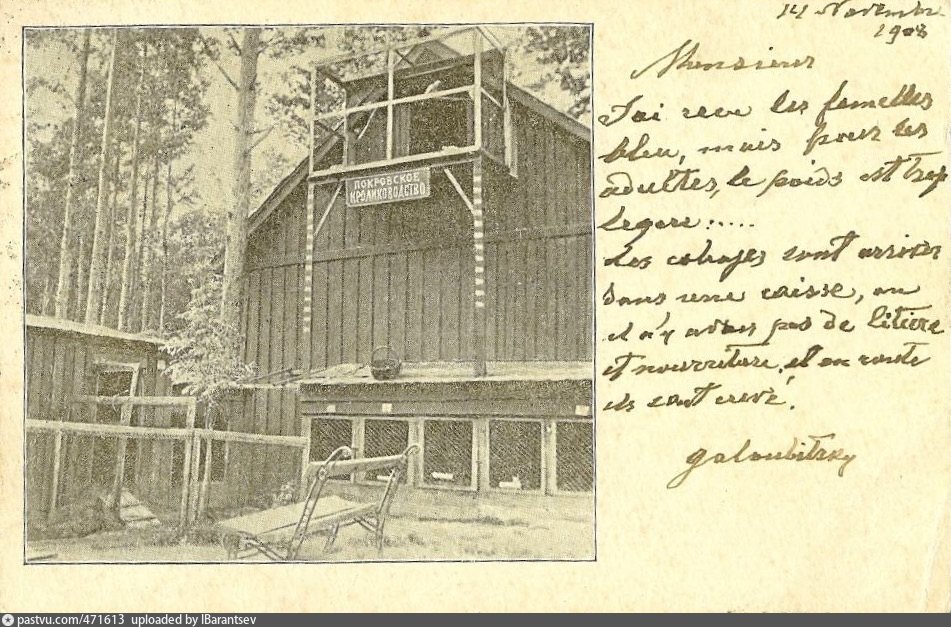 14 Novembre
1908
Monsieur
J'ai recu les femelles
bleu, mais pour les
adultes, le poids est trop
legere :.....
Les cobayes sont arrivés
dans une caisse, ou
il n'y avais pas de litiere
et nourriture, et en route
ils sont crevé.
Goloubitzky
ПОКРОВСКОЕ
КРОЛИКОВОДСТВО
pastvu.com/471613 uploaded by IBarantsev